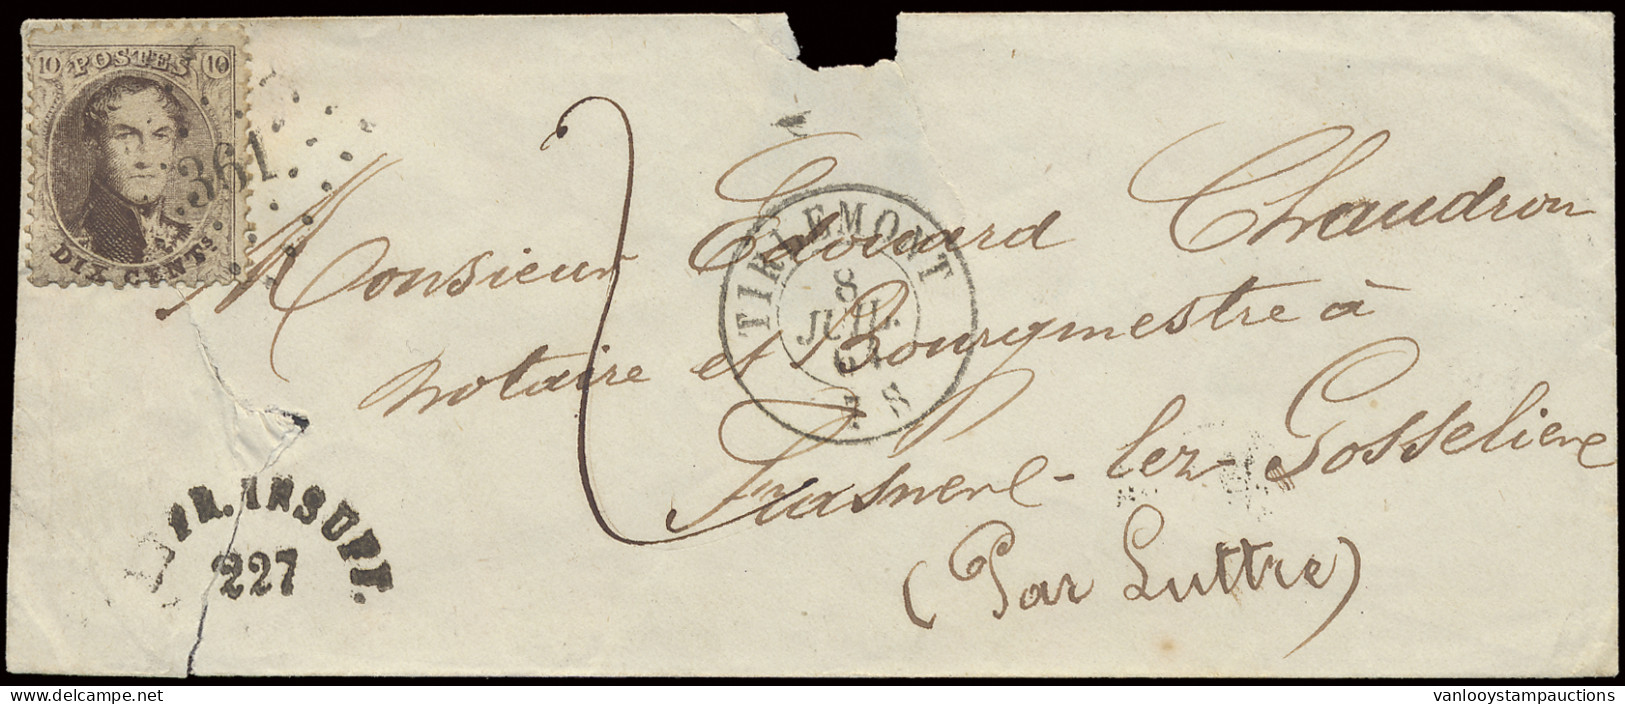 10 POSTES 10
DIX CENTS
361
Monsieur Edouard Chaudron
notaire et Bourgmestre à
Frasnene - lez - Gosseliene
(Par Luttre)
TIRLEMONT
8
JUIL.
7 S
2
AFFR. INSUFF.
227
vanlooystampauctions